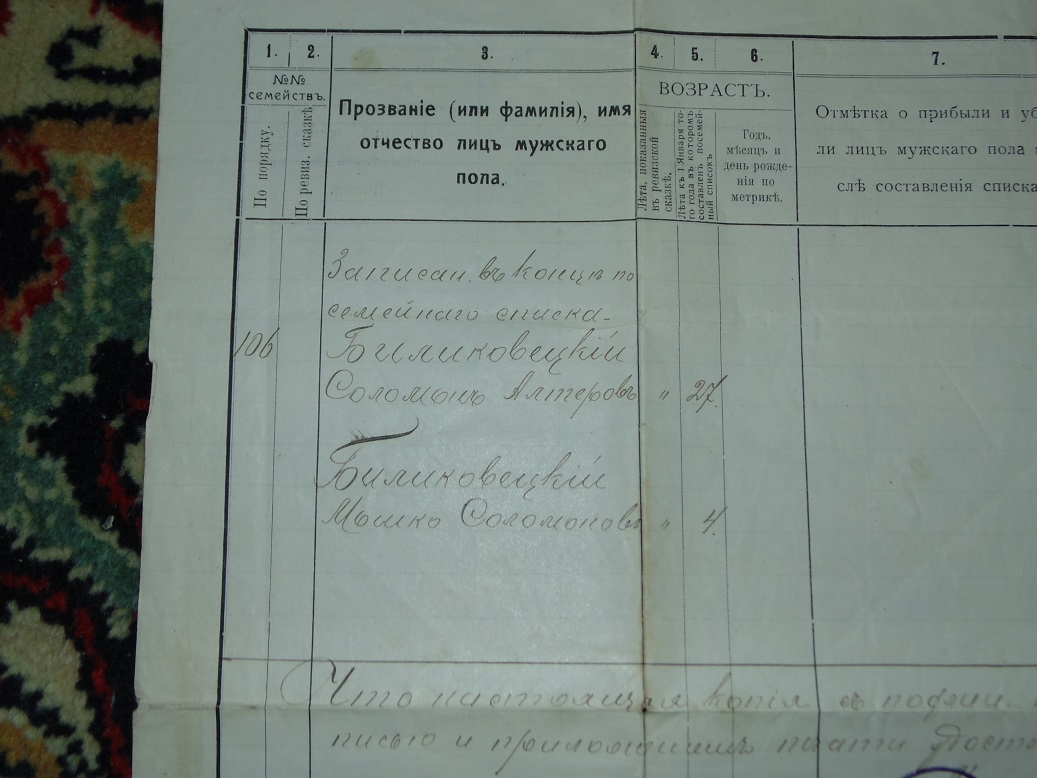 1. 2. 3. 4. 5. 6. 7.
№№
семействъ.
По порядку.
По ревиз. сказкѣ
Прозваніе (или фамилія), имя
отчество лицъ мужскаго
пола.
ВОЗРАСТЪ.
Лѣта, показанныя
въ ревизской
сказкѣ.
Лѣта къ 1 Января то-
го года въ которомъ
составленъ посемей-
ный списокъ
Годъ,
мѣсяцъ и
день рожде-
нія по
метрикѣ.
Отмѣтка о прибыли и уб
ли лицъ мужскаго пола
слѣ составленія списка
Записан. въ концѣ по
семейнаго списка-
106 Биликовецкій
Соломонъ Алтеровъ " 27.
Биликовецкій
Мошко Соломоновъ " 4.
Что настоящая копія съ
писью и приложеніемъ печати